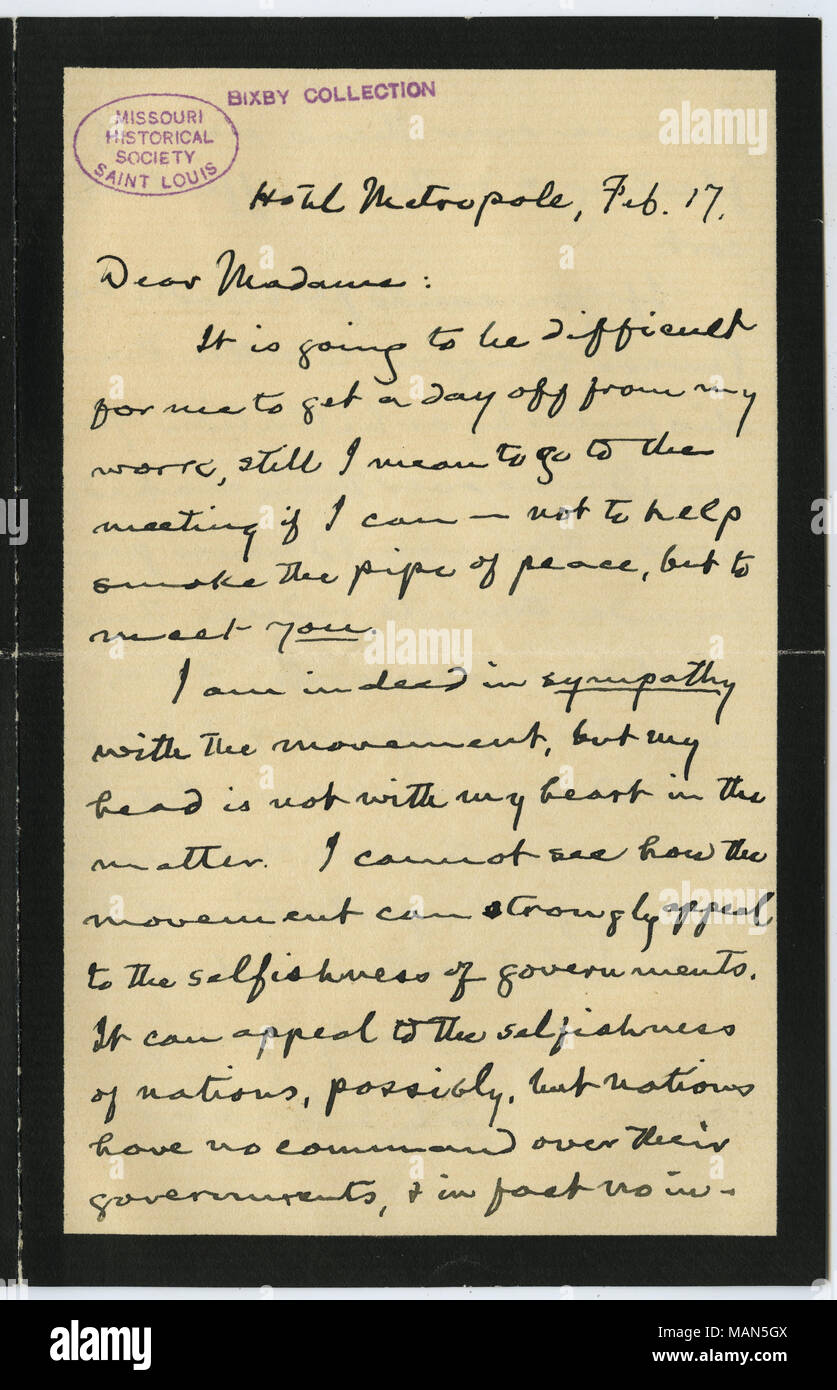 BIXBY COLLECTION
MISSOURI
HISTORICAL
SOCIETY
SAINT LOUIS
Hotel Metropole, Feb. 17.
Dear Madame:
It is going to be difficult
for me to get a day off from my
work, still I mean to go to the
meeting if I can — not to help
smoke the pipe of peace, but to
meet you.
I am indeed in sympathy
with the movement, but my
head is not with my heart in the
matter. I cannot see how the
movement can strongly appeal
to the selfishness of governments.
It can appeal to the selfishness
of nations, possibly, but nations
have no command over their
governments, & in fact no in-
alamy
alamy
Image ID: MAN5GX
www.alamy.com